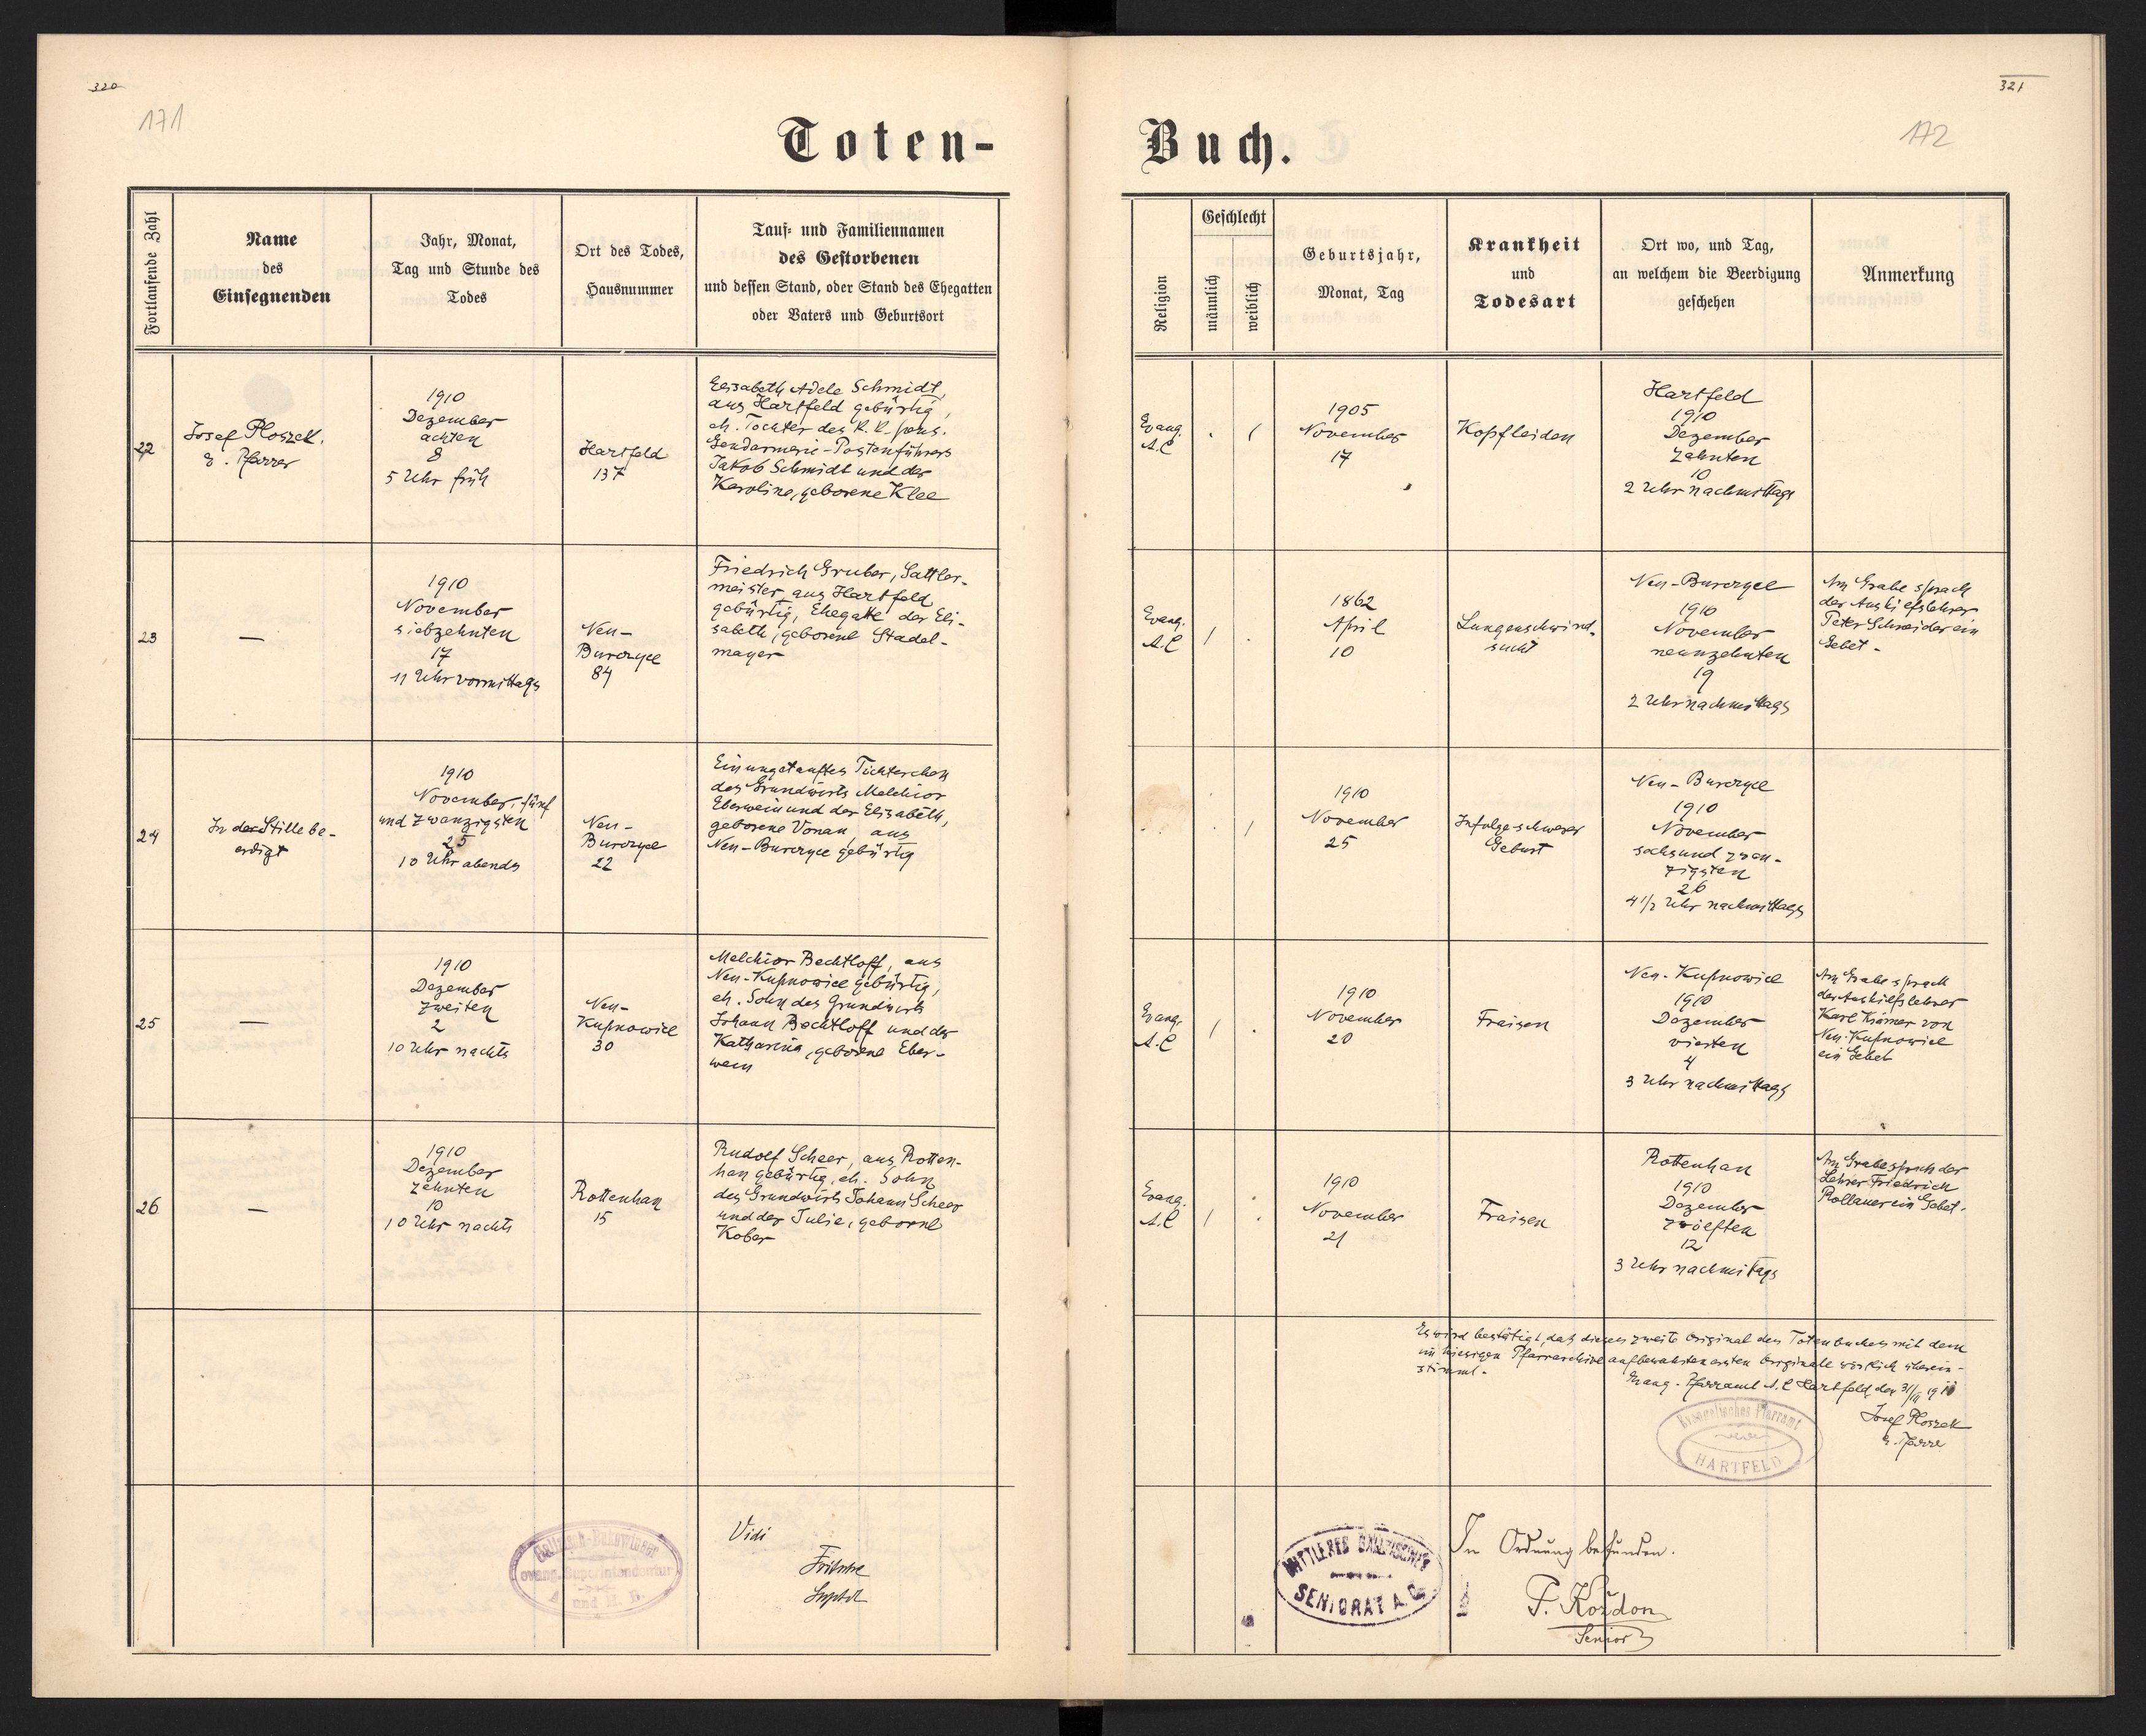 320
171
Toten-
Fortlaufende Zahl
Name
des
Einsegnenden
Jahr, Monat,
Tag und Stunde des
Todes
Ort des Todes,
Hausnummer
Tauf- und Familiennamen
des Gestorbenen
und dessen Stand, oder Stand des Ehegatten
oder Vaters und Geburtsort
22
Josef Ploszek.
E. Pfarrer
1910
Dezember
achten
8
5 Uhr früh
Hartfeld
137
Elisabeth Adele Schmidt,
aus Hartfeld gebürtig,
eh. Tochter des K. K. pens.
Gendarmerie-Postenführers
Jakob Schmidt und der
Karoline, geborene Klee
23
—
1910
November
siebzehnten
17
11 Uhr vormittags
Neu-
Burczyce
84
Friedrich Gruber, Sattler-
meister, aus Hartfeld
gebürtig, Ehegatte der Eli-
sabeth, geborene Stadel-
mayer
24
In der Stille be-
erdigt
1910
November, fünf
und zwanzigsten
25
10 Uhr abends
Neu-
Burczyce
22
Ein ungetauftes Töchterchen
des Grundwirts Melchior
Eberwein und der Elisabeth,
geborene Vonau, aus
Neu-Burczyce gebürtig
25
—
1910
Dezember
zweiten
2
10 Uhr nachts
Neu-
Kupnowice
30
Melchior Bechtloff, aus
Neu-Kupnowice gebürtig,
eh. Sohn des Grundwirts
Johann Bechtloff und der
Katharina, geborene Eber-
wein
26
—
1910
Dezember
zehnten
10
10 Uhr nachts
Rottenhan
15
Rudolf Scheer, aus Rotten-
han gebürtig, eh. Sohn
des Grundwirts Johann Scheer
und der Julie, geborene
Kober
Galizisch-Bukowinaer
evang. Superintendentur
A. und H. B.
Vidi
Fritsche
Suptdt
321
172
Buch.
Religion
Geschlecht
männlich
weiblich
Geburtsjahr,
Monat, Tag
Krankheit
und
Todesart
Ort wo, und Tag,
an welchem die Beerdigung
geschehen
Anmerkung
Evang.
A.C
.
/
1905
November
17
Kopfleiden
Hartfeld
1910
Dezember
zehnten
10
2 Uhr nachmittags
Evang.
A.C
/
.
1862
April
10
Lungenschwind-
sucht
Neu-Burczyce
1910
November
neunzehnten
19
2 Uhr nachmittags
Am Grabe sprach
der Aushilfslehrer
Peter Schneider ein
Gebet.
.
/
1910
November
25
Infolge schwerer
Geburt
Neu-Burczyce
1910
November
sechsund zwan-
zigsten
26
4 1/2 Uhr nachmittags
Evang.
A.C
/
.
1910
November
20
Fraisen
Neu-Kupnowice
1910
Dezember
vierten
4
3 Uhr nachmittags
Am Grabe sprach
der Aushilfslehrer
Karl Krämer von
Neu-Kupnowice
ein Gebet
Evang.
A.C
/
.
1910
November
21
Fraisen
Rottenhan
1910
Dezember
zwölften
12
3 Uhr nachmittags
Am Grabe sprach der
Lehrer Friedrich
Rollauer ein Gebet.
Es wird bestätigt, daß dieses zweite Original des Totenbuches mit dem
im hiesigen Pfarrarchive aufbewahrten ersten Originale wörtlich überein-
stimmt.
Evang. Pfarramt A.C Hartfeld, den 31/III 1911
Josef Ploszek
E. Pfarrer
Evangelisches Pfarramt
HARTFELD
MITTLERES GALIZISCHES
SENIORAT A.C.
In Ordnung befunden.
F. Koždon
Senior